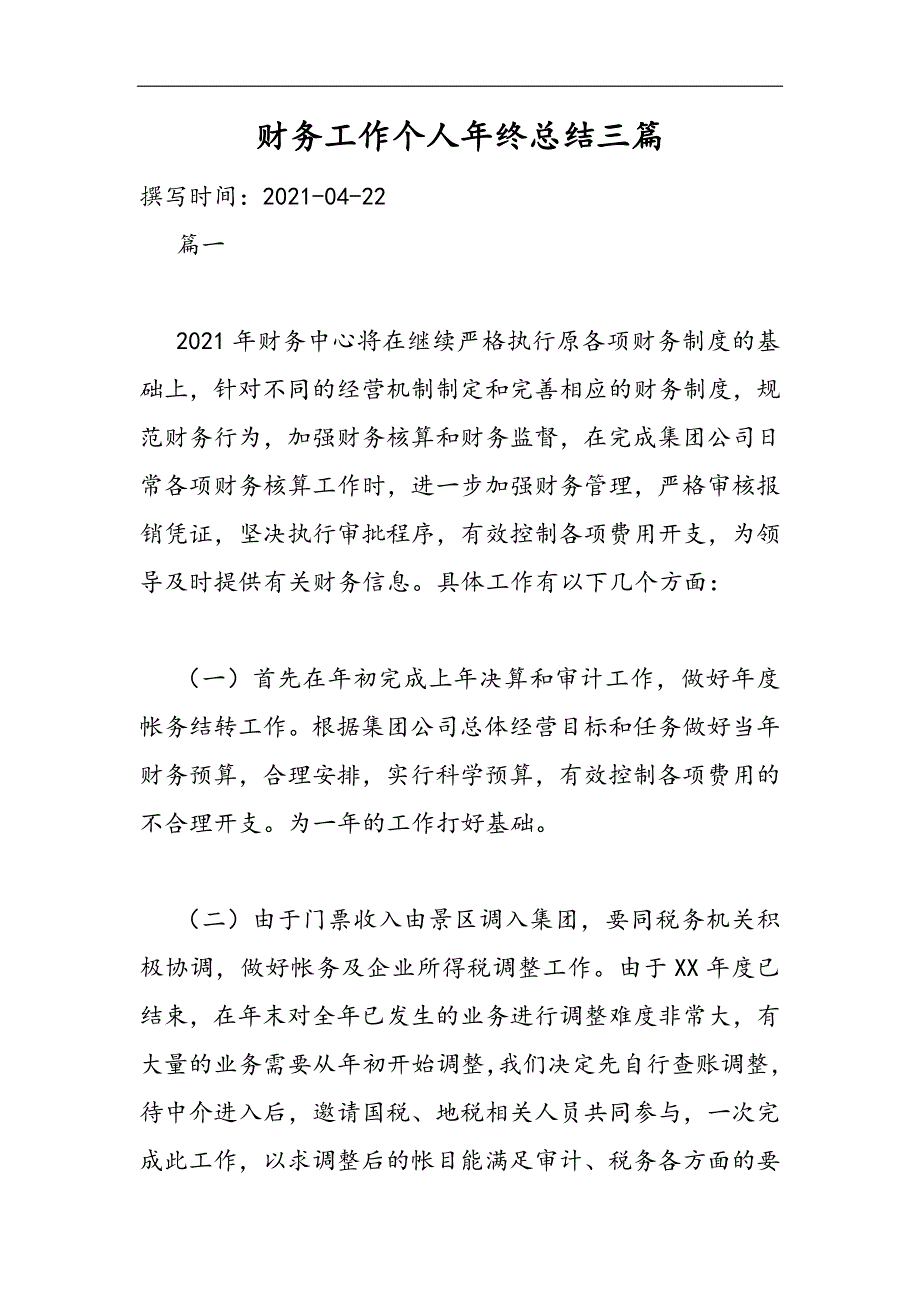 财务工作个人年终总结三篇
撰写时间：2021-04-22
篇一
2021 年财务中心将在继续严格执行原各项财务制度的基
础上，针对不同的经营机制制定和完善相应的财务制度，规
范财务行为，加强财务核算和财务监督，在完成集团公司日
常各项财务核算工作时，进一步加强财务管理，严格审核报
销凭证，坚决执行审批程序，有效控制各项费用开支，为领
导及时提供有关财务信息。具体工作有以下几个方面：
（一）首先在年初完成上年决算和审计工作，做好年度
帐务结转工作。根据集团公司总体经营目标和任务做好当年
财务预算，合理安排，实行科学预算，有效控制各项费用的
不合理开支。为一年的工作打好基础。
（二）由于门票收入由景区调入集团，要同税务机关积
极协调，做好帐务及企业所得税调整工作。由于 XX 年度已
结束，在年末对全年已发生的业务进行调整难度非常大，有
大量的业务需要从年初开始调整，我们决定先自行查账调整，
待中介进入后，邀请国税、地税相关人员共同参与，一次完
成此工作，以求调整后的帐目能满足审计、税务各方面的要